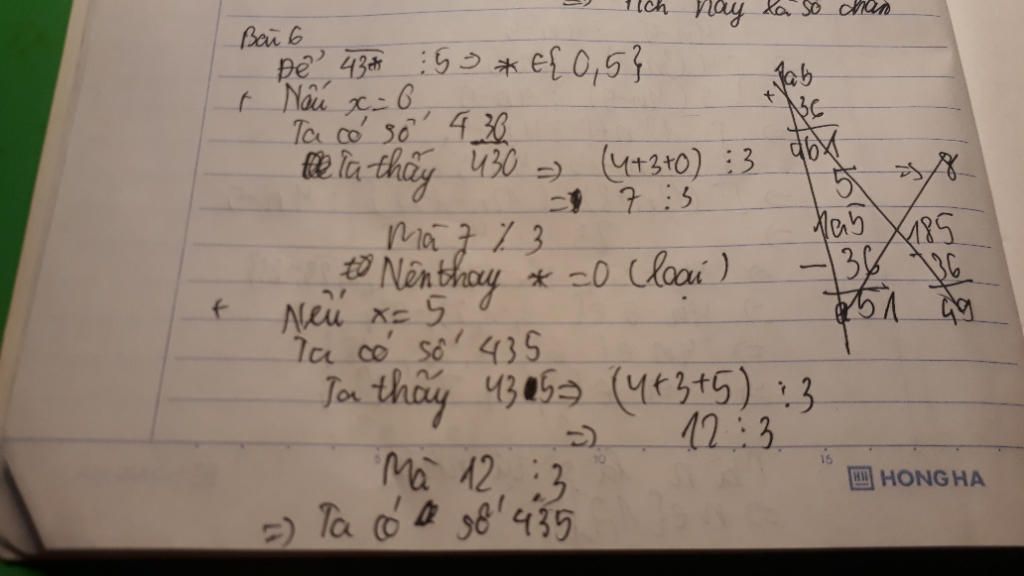 => Tích này là số chẵn
Bài 6
Để 43* ⋮ 5 => * ∈ { 0, 5 }
+ Nếu x = 0
Ta có số 430
Ta thấy 430 => (4+3+0) ⋮ 3
=> 7 ⋮ 3
Mà 7 ⋮̸ 3
Nên thay * = 0 (loại)
+ Nếu x = 5
Ta có số 435
Ta thấy 435 => (4+3+5) ⋮ 3
=> 12 ⋮ 3
Mà 12 ⋮ 3
=> Ta có số 435
1ab
+ 36
ab1
5 => 8
1a5 185
- 36 - 36
a51 49
15
HONG HA